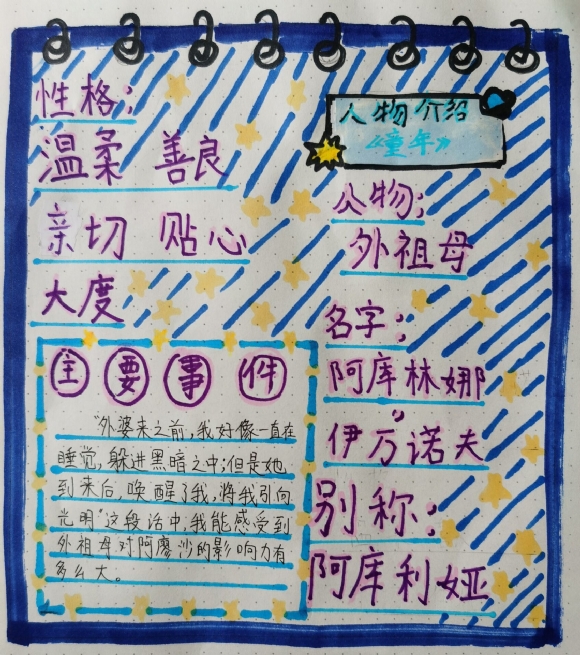 性格:
温柔 善良
亲切 贴心
大度
人物介绍
《童年》
人物:
外祖母
名字:
阿库林娜
伊万诺夫
别称:
阿库利娅
主要事件
"外婆未之前,我好像一直在
睡觉,躲进黑暗之中;但是她
到来后,唤醒了我,将我引向
光明"这段话中,我能感受到
外祖母对阿廖沙的影响力有
多么大。